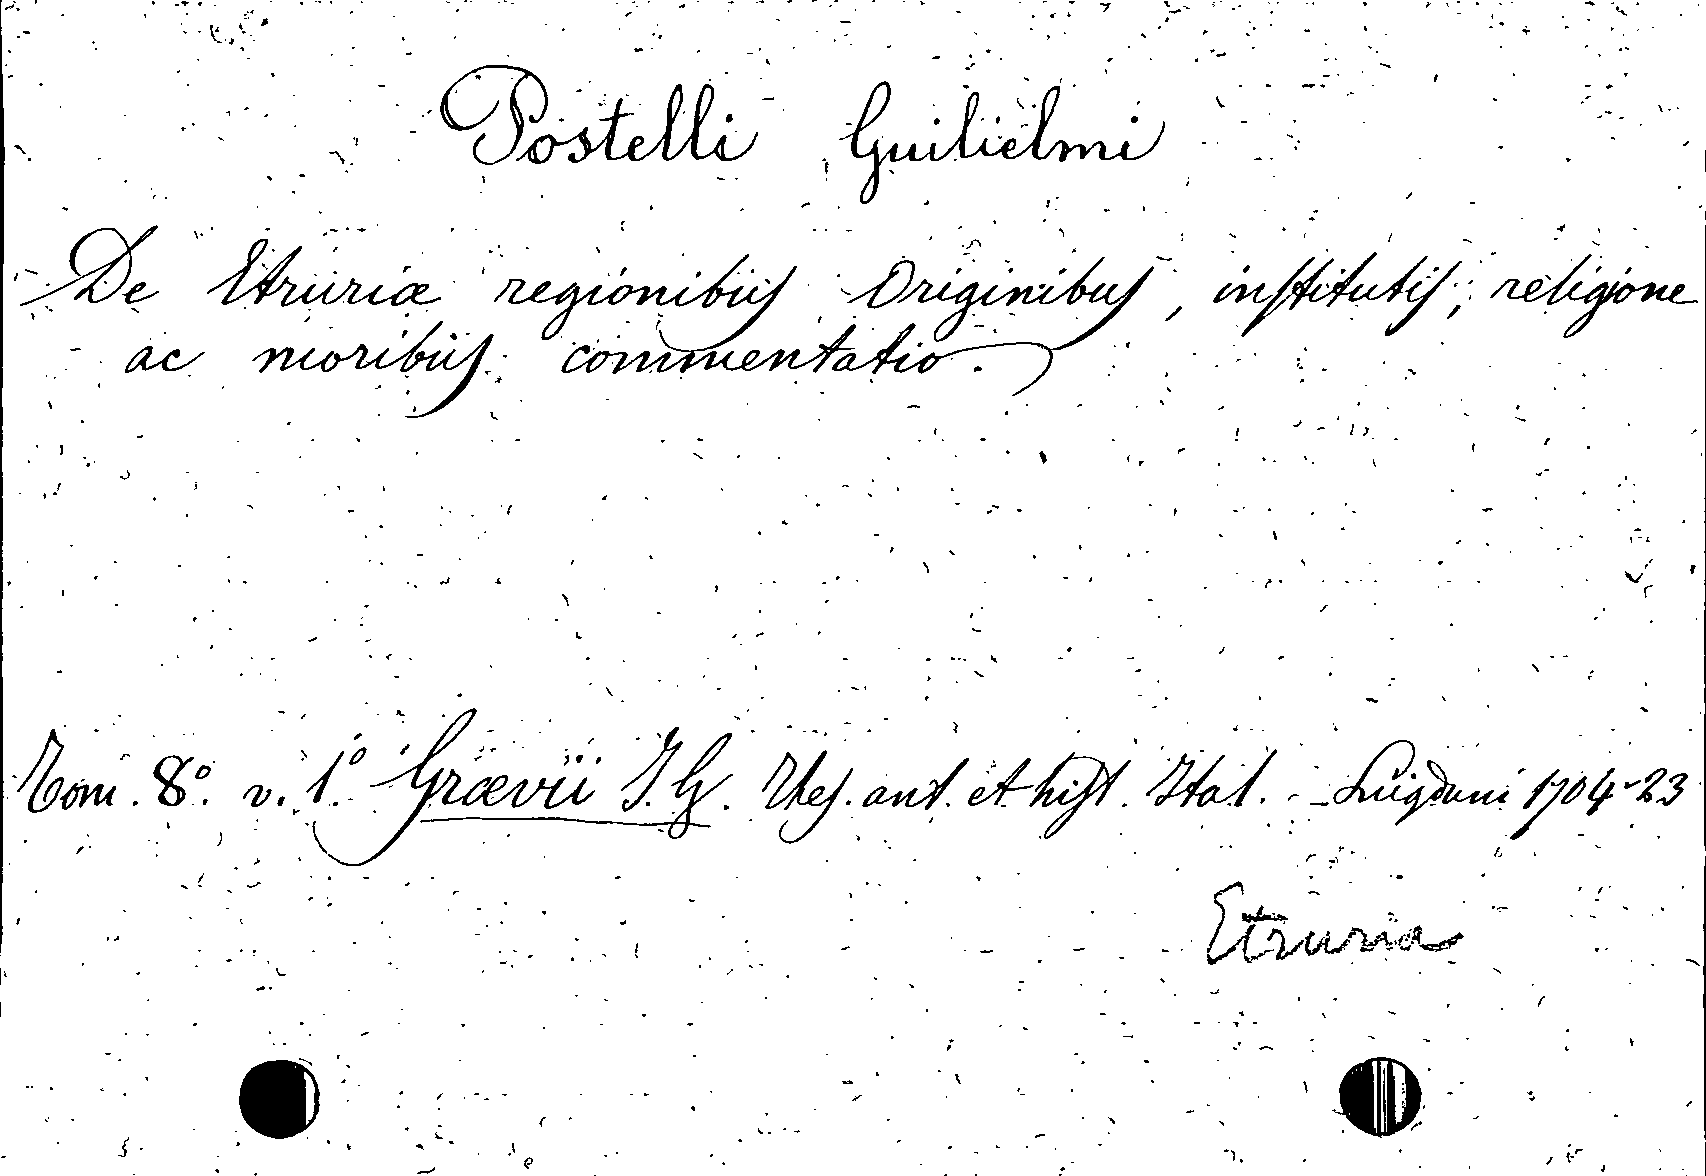 Postelli Guilielmi
De Etruriæ regionibus Originibus, institutis, religione
ac moribus commentatio.
Tom. 8° v. 1° Grævii J. G. Thes. ant. et hist. Ital. - Lugduni 1704-23
Etruria